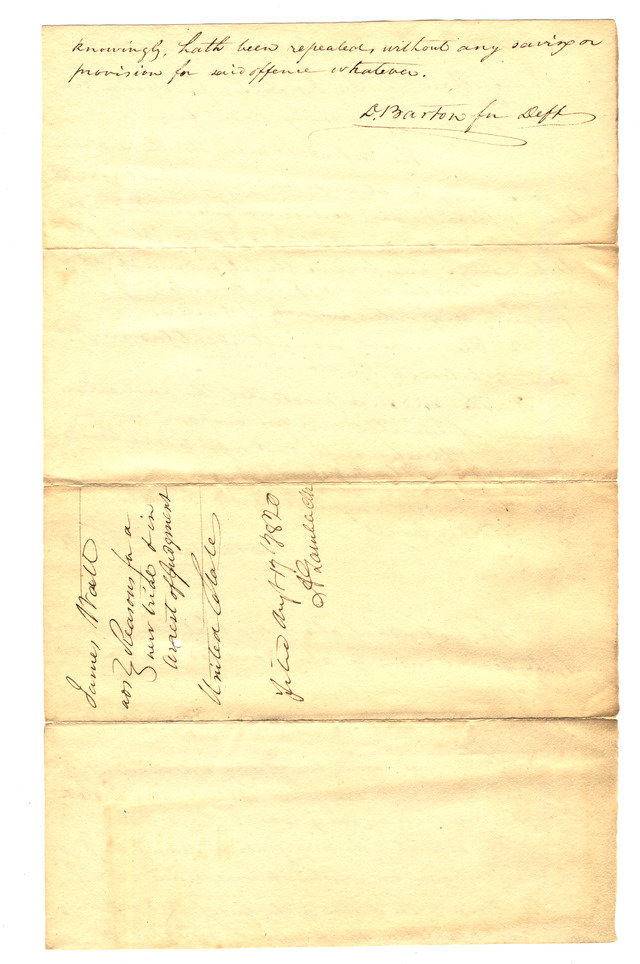 knowingly, hath been repealed, without any saving or
provision for said offence whatever.
D. Barton for Deft
James Watt
ads } Reasons for a
new trial & in
Arrest of Judgment
United States
Filed Augt 17 1820